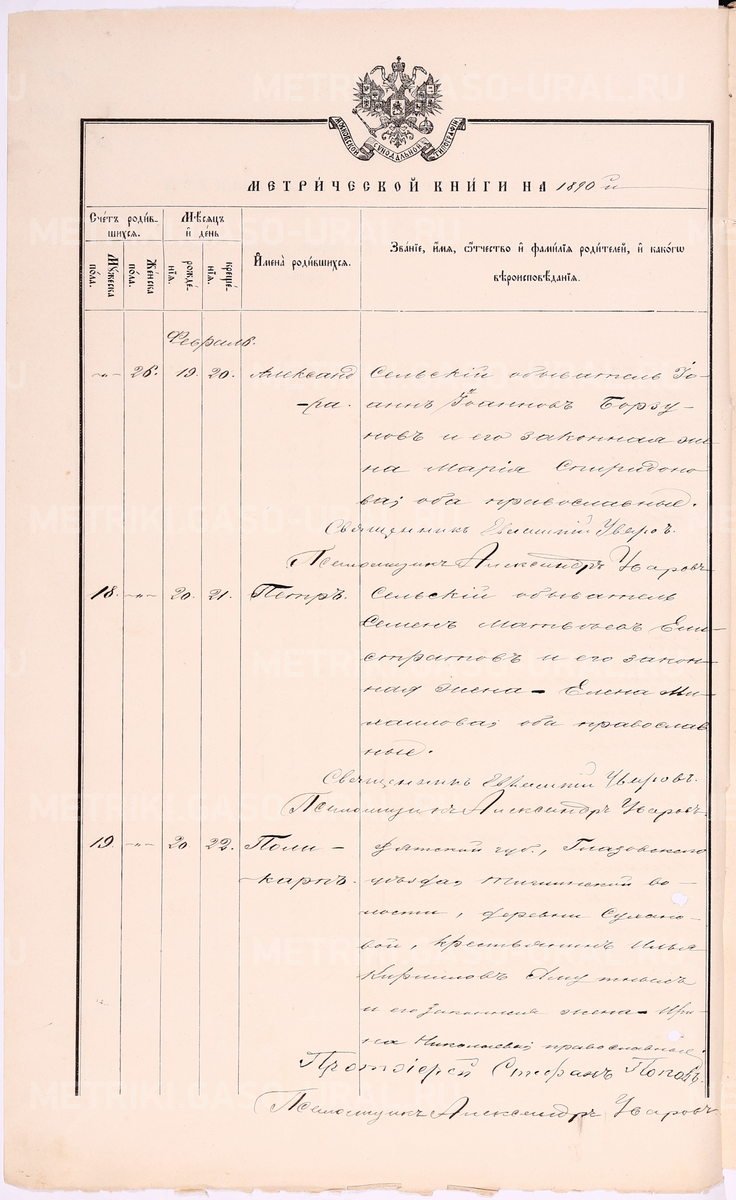 МОСКОВСКОЙ СѴНОДАЛЬНОЙ ТИПОГРАФІИ
МЕТРИ́ЧЕСКОЙ КНИ́ГИ НА 1890 й
Сче́тъ роди́в-
шихся.
Му́жеска
пола.
Же́нска
пола.
Мѣ́сяцъ
и҆ де́нь
рожде́-
нїя.
креще́-
нїя.
И҆мена̀ роди́вшихся.
Зва́нїе, и҆́мя, ѻ҆́тчество и҆ фами́лїя роди́телей, и҆ како́гѡ
вѣроисповѣ́данїя.
Февраль.
-„- 26. 19. 20. Александ Сельскій обыватель Іо-
-ра. аннъ Іоанновъ Борзу-
новъ и его законная же
на Марія Спиридоно
ва; оба православные.
Священникъ Евластій Уваровъ.
Псаломщикъ Александръ Уваровъ
18. -„- 20. 21. Петръ. Сельскій обыватель
Семенъ Матвѣевъ Ели-
стратовъ и его закон-
ная жена - Елена Ми-
хаилова; оба православ
ные.
Священникъ Уваровъ.
Псаломщикъ Александръ Уваровъ.
19. -„- 20 22. Поли- Вятской губ., Глазовскаго
-карпъ. уѣзда, во-
лости, деревни
вой, крестьянинъ Илья
Кирилловъ
и его законная жена - Ири
на Николаева; православные.
Протоіерей Стефанъ Поповъ.
Псаломщикъ Александръ Уваровъ
METRIKI.GASO-URAL.RU